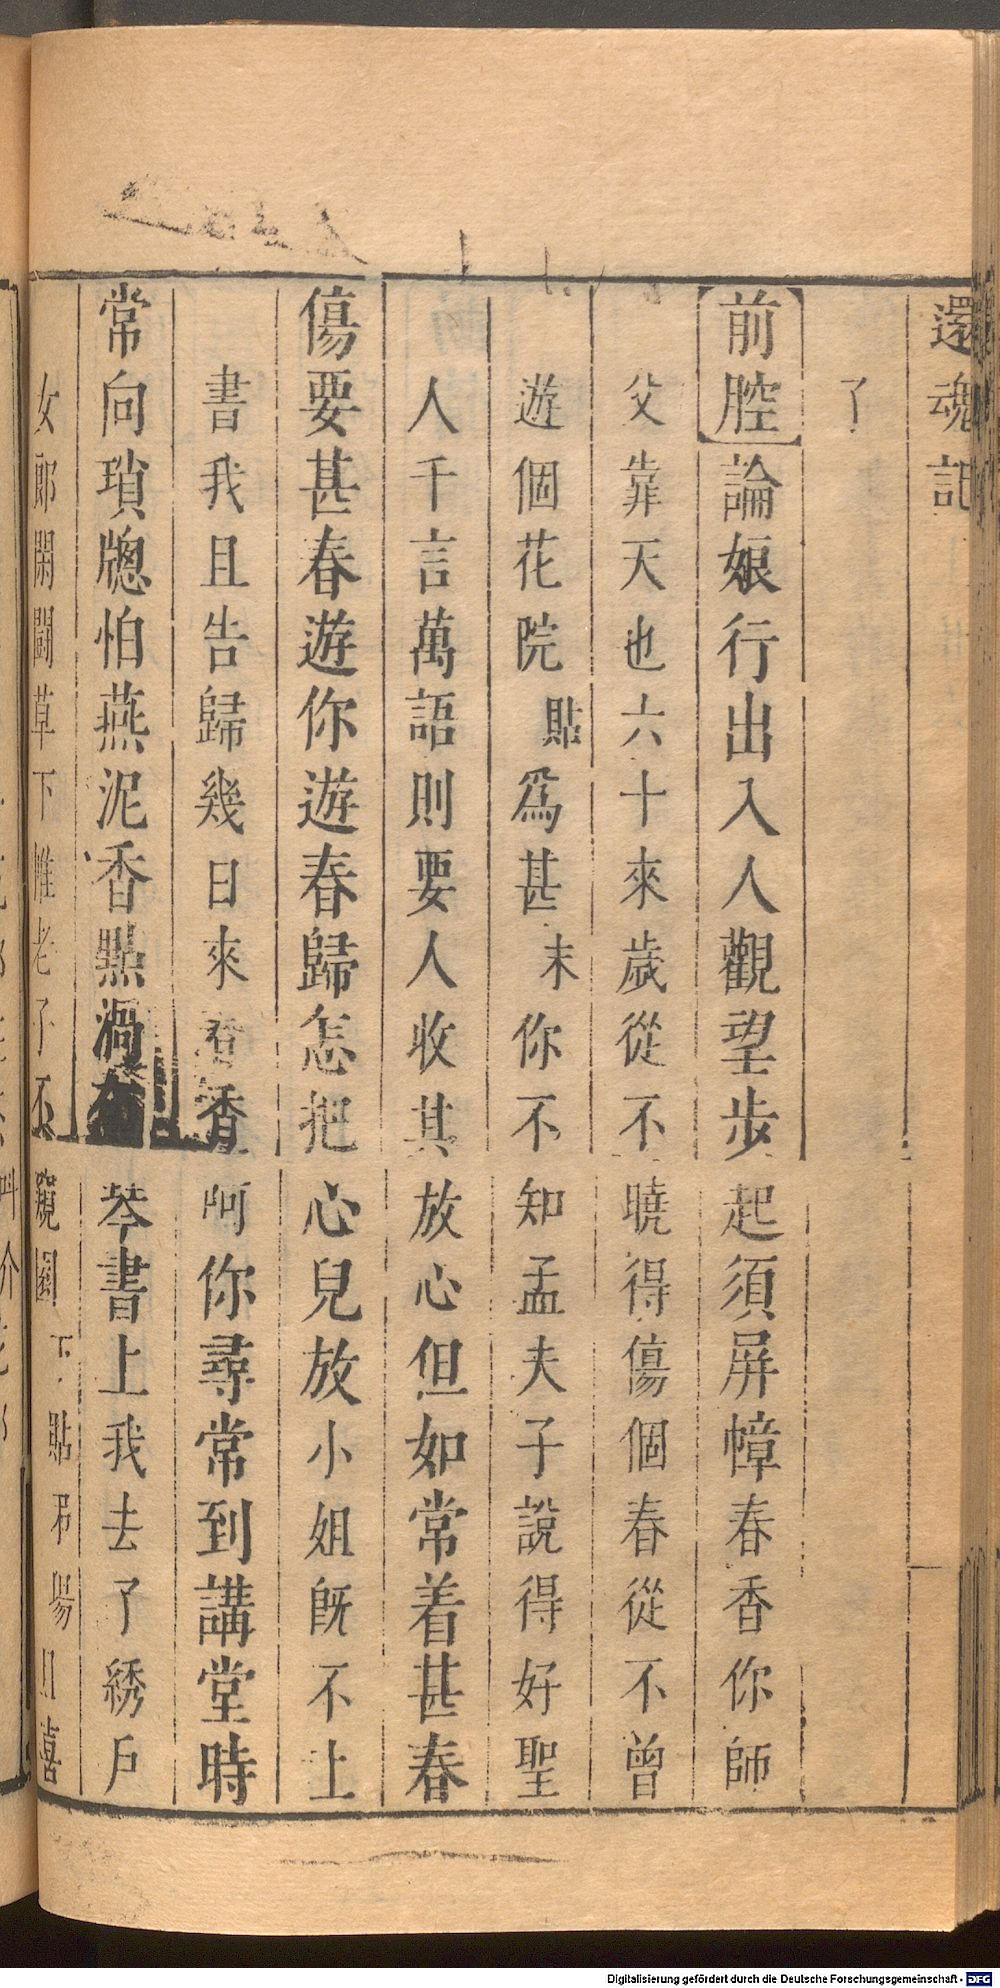 還魂記
了
前腔論娘行出入人觀望步起須屏幛春香你師
父靠天也六十來歲從不曉得傷個春從不曾
遊個花院貼爲甚末你不知孟夫子說得好聖
人千言萬語則要人收其放心但如常着甚春
傷要甚春遊你遊春歸怎把心兒放小姐旣不上
書我且告歸幾日來春香呵你尋常到講堂時
常向瑣牕怕燕泥香點涴琴書上我去了綉戶
女郎閑鬭草下帷老子不窺園下貼弔場且喜
Digitalisierung gefördert durch die Deutsche Forschungsgemeinschaft - DFG